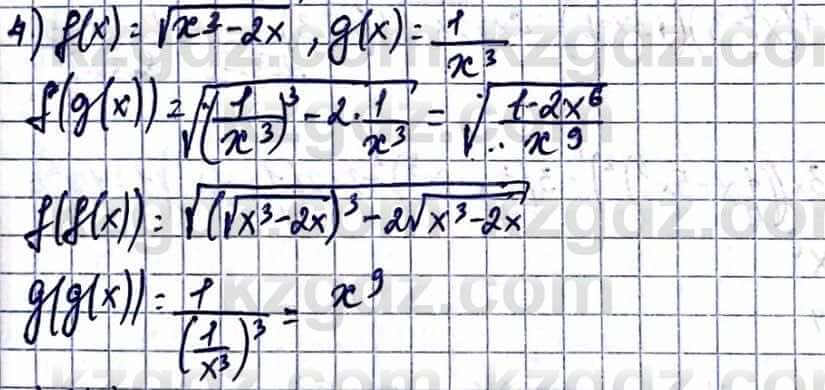 4) f(x) = √(x³ - 2x), g(x) = 1/x³
f(g(x)) = √((1/x³)³ - 2 · 1/x³) = √((1 - 2x⁶)/x⁹)
f(f(x)) = √((√(x³ - 2x))³ - 2√(x³ - 2x))
g(g(x)) = 1/(1/x³)³ = x⁹
kzgdz.com